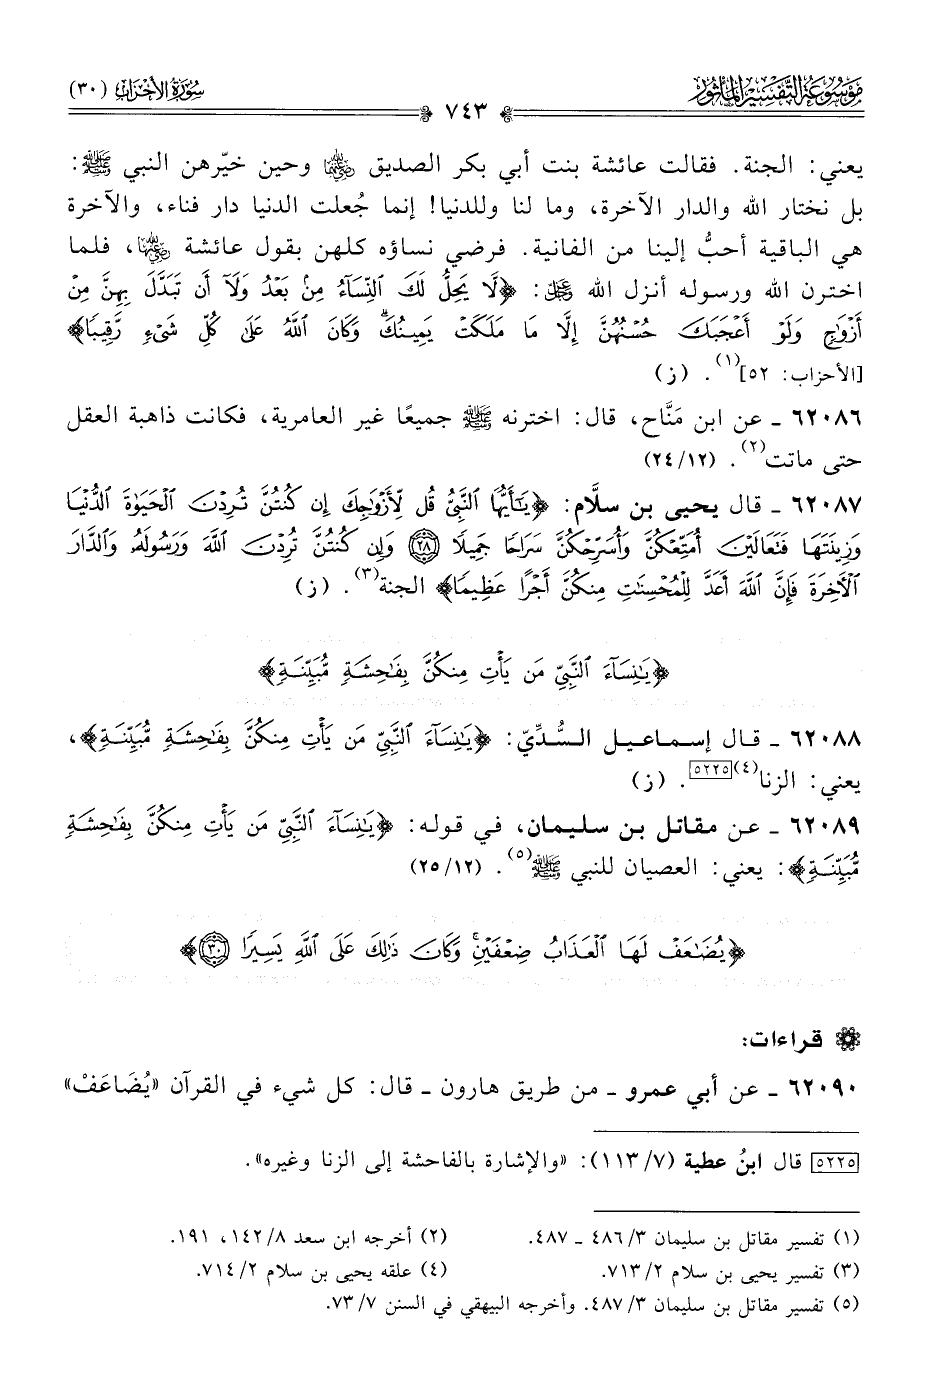 مَوْسُوعَة التَّفْسِير المَأْثُور
سُورَةُ الأَحْزَاب (٣٠)
٧٤٣
يعني: الجنة. فقالت عائشة بنت أبي بكر الصديق ﵁ وحين خيّرهن النبي ﷺ:
بل نختار الله والدار الآخرة، وما لنا وللدنيا! إنما جُعلت الدنيا دار فناء، والآخرة
هي الباقية أحبُّ إلينا من الفانية. فرضي نساؤه كلهن بقول عائشة ﵂، فلما
اخترن الله ورسوله أنزل الله ﷿: ﴿لَّا يَحِلُّ لَكَ ٱلنِّسَآءُ مِنۢ بَعْدُ وَلَآ أَن تَبَدَّلَ بِهِنَّ مِنْ
أَزْوَٰجٍ وَلَوْ أَعْجَبَكَ حُسْنُهُنَّ إِلَّا مَا مَلَكَتْ يَمِينُكَ ۗ وَكَانَ ٱللَّهُ عَلَىٰ كُلِّ شَىْءٍ رَّقِيبًا﴾
[الأحزاب: ٥٢](١). (ز)
٦٢٠٨٦ ـ عن ابن مَنَّاح، قال: اخترنه ﷺ جميعًا غير العامرية، فكانت ذاهبة العقل
حتى ماتت(٢). (١٢/ ٢٤)
٦٢٠٨٧ ـ قال يحيى بن سلَّام: ﴿يَٰٓأَيُّهَا ٱلنَّبِىُّ قُل لِّأَزْوَٰجِكَ إِن كُنتُنَّ تُرِدْنَ ٱلْحَيَوٰةَ ٱلدُّنْيَا
وَزِينَتَهَا فَتَعَالَيْنَ أُمَتِّعْكُنَّ وَأُسَرِّحْكُنَّ سَرَاحًا جَمِيلًا ﴿٢٨﴾ وَإِن كُنتُنَّ تُرِدْنَ ٱللَّهَ وَرَسُولَهُۥ وَٱلدَّارَ
ٱلْءَاخِرَةَ فَإِنَّ ٱللَّهَ أَعَدَّ لِلْمُحْسِنَٰتِ مِنكُنَّ أَجْرًا عَظِيمًا﴾ الجنة(٣). (ز)
﴿يَٰنِسَآءَ ٱلنَّبِىِّ مَن يَأْتِ مِنكُنَّ بِفَٰحِشَةٍ مُّبَيِّنَةٍ﴾
٦٢٠٨٨ ـ قال إسماعيل السُّدِّيّ: ﴿يَٰنِسَآءَ ٱلنَّبِىِّ مَن يَأْتِ مِنكُنَّ بِفَٰحِشَةٍ مُّبَيِّنَةٍ﴾،
يعني: الزنا(٤)[٥٢٢٥]. (ز)
٦٢٠٨٩ ـ عن مقاتل بن سليمان، في قوله: ﴿يَٰنِسَآءَ ٱلنَّبِىِّ مَن يَأْتِ مِنكُنَّ بِفَٰحِشَةٍ
مُّبَيِّنَةٍ﴾: يعني: العصيان للنبي ﷺ(٥). (١٢/ ٢٥)
﴿يُضَٰعَفْ لَهَا ٱلْعَذَابُ ضِعْفَيْنِ ۚ وَكَانَ ذَٰلِكَ عَلَى ٱللَّهِ يَسِيرًا ﴿٣٠﴾﴾
قراءات:
٦٢٠٩٠ ـ عن أبي عمرو ـ من طريق هارون ـ قال: كل شيء في القرآن «يُضَاعَفْ»
[٥٢٢٥] قال ابنُ عطية (٧/ ١١٣): «والإشارة بالفاحشة إلى الزنا وغيره».
(١) تفسير مقاتل بن سليمان ٣/ ٤٨٦ ـ ٤٨٧.
(٢) أخرجه ابن سعد ٨/ ١٤٢، ١٩١.
(٣) تفسير يحيى بن سلام ٢/ ٧١٣.
(٤) علقه يحيى بن سلام ٢/ ٧١٤.
(٥) تفسير مقاتل بن سليمان ٣/ ٤٨٧. وأخرجه البيهقي في السنن ٧/ ٧٣.